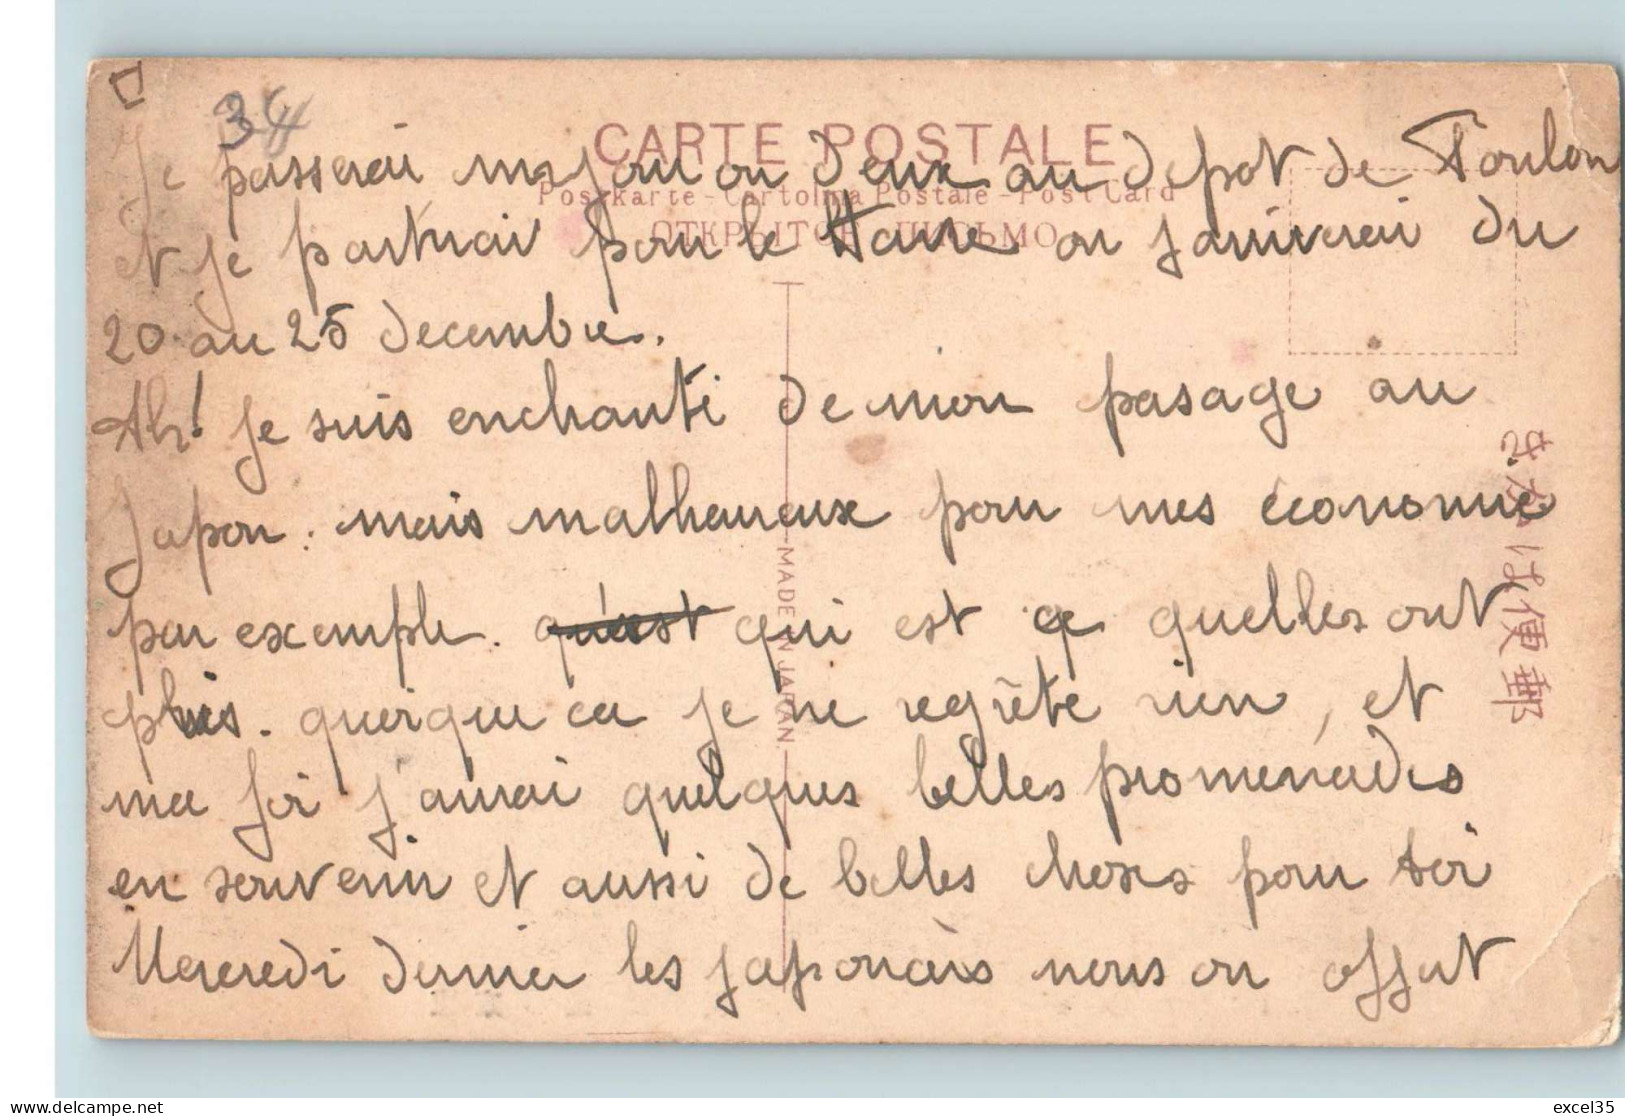 34
CARTE POSTALE
Postkarte - Cartolina Postale - Post Card
ОТКРЫТОЕ ПИСЬМО
Je passerai un jour ou deux au depot de Toulon
et je partirai pour le Havre ou j'arriverai du
20 au 25 decembre.
Ah! je suis enchanté de mon pasage au
Japon. mais malheureux pour mes économie
par exemple. qu'est qui est ce quelles ont
plus. quoique ca je ne regrète rien, et
ma foi j'aurai quelques belles promenades
en souvenir et aussi de belles choses pour toi
Mercredi dernier les japonais nous on offert
MADE IN JAPAN
郵便はがき
delcampe.net
excel35